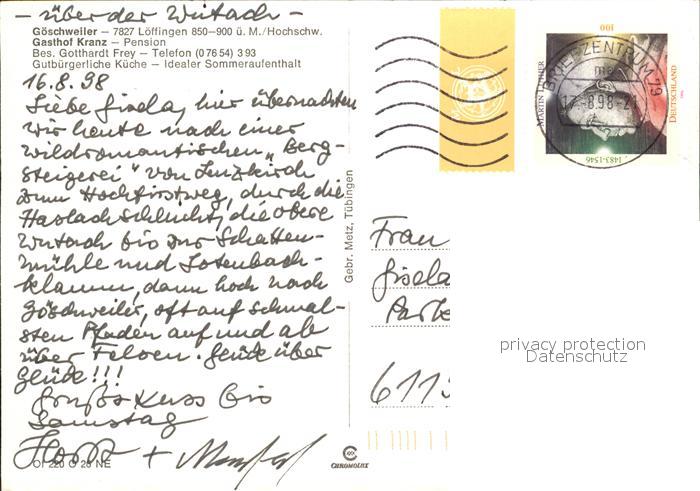 – über der Wutach –
Göschweiler – 7827 Löffingen 850–900 ü. M./Hochschw.
Gasthof Kranz – Pension
Bes. Gotthardt Frey – Telefon (0 76 54) 3 93
Gutbürgerliche Küche – Idealer Sommeraufenthalt
16.8.98
Liebe Gisela, hier übernachten
wir heute nach einer
wildromantischen „Berg-
steigerei" von Lenzkirch
zum Hochfirstweg, durch die
Haslachschlucht, die obere
Wutach bis zur Schatten-
mühle und Lotenbach-
klamm, dann hoch nach
Göschweiler, oft auf schmal-
sten Pfaden auf und ab
über Felsen. Glück über
Glück!!!
Gruß + Kuss bis
Samstag
Horst + Manfred
OI 220 G 26 NE
Gebr. Metz, Tübingen
CHROMOLUX
100
MARTIN LUTHER
DEUTSCHLAND
1483-1546
BRIEFZENTRUM 79
17.-8.98-21
Frau
Gisela
Parke
6115
privacy protection
Datenschutz